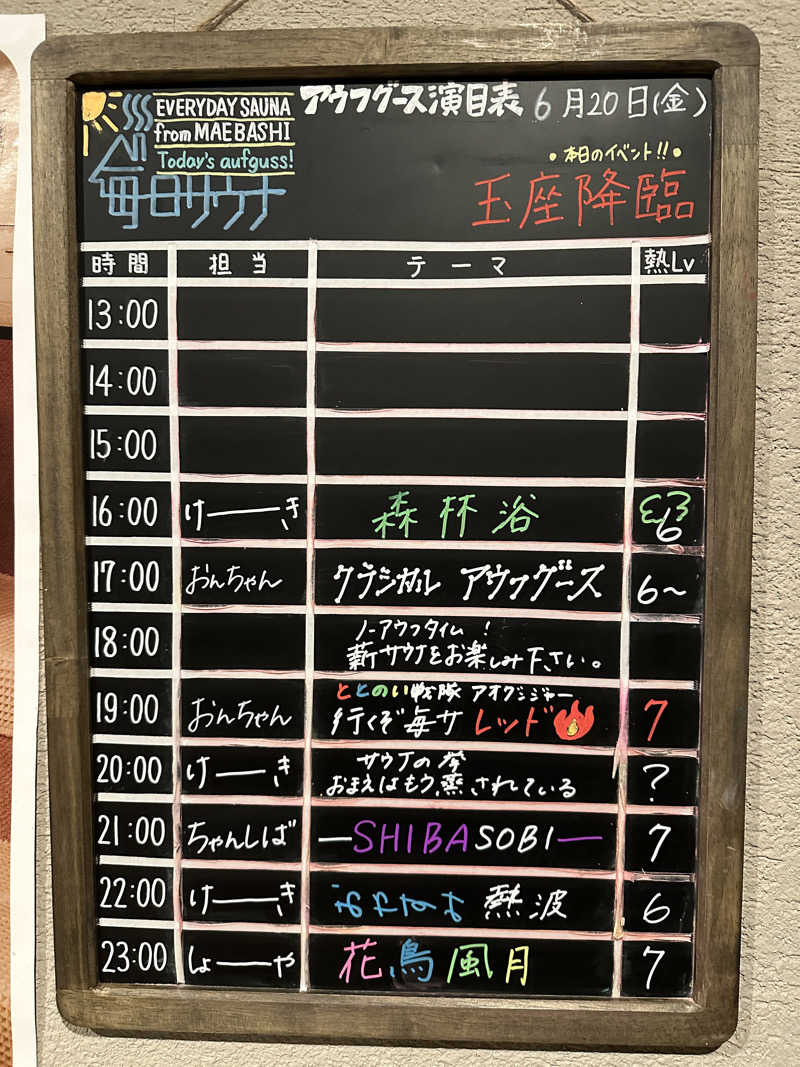 EVERYDAY SAUNA
from MAEBASHI
Today's aufguss!
毎日サウナ
アウフグース演目表 6月20日(金)
・本日のイベント!!・
玉座降臨
時間 担当 テーマ 熱Lv
13:00
14:00
15:00
16:00 けーき 森林浴 6
17:00 おんちゃん クラシカル アウフグース 6〜
18:00 ノーアウフタイム!
薪サウナをお楽しみ下さい。
ととのい戦隊 アオグンジャー
19:00 おんちゃん 行くぞ毎サ レッド 7
サウナの拳
20:00 けーき おまえはもう蒸されている ?
21:00 ちゃんしば ーSHIBASOBIー 7
22:00 けーき 熱波 6
23:00 しょーや 花鳥風月 7